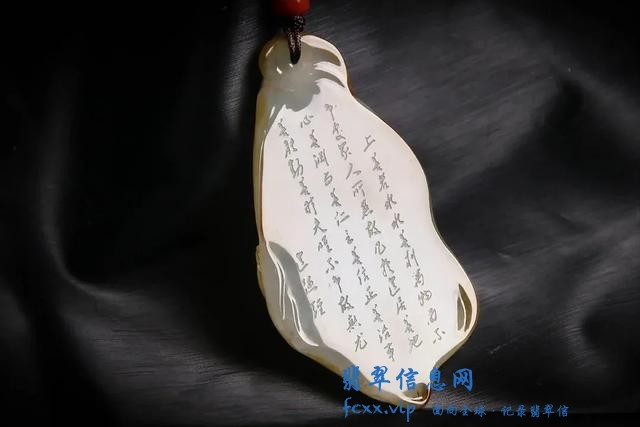 上善若水水善利萬物而不
争處眾人所惡故几於道居善地
心善渊与善仁言善信正善治事
善能動善时夫唯不争故無尤
道德經
翡翠信息网
fcxx.vip 面向全球·记录翡翠信